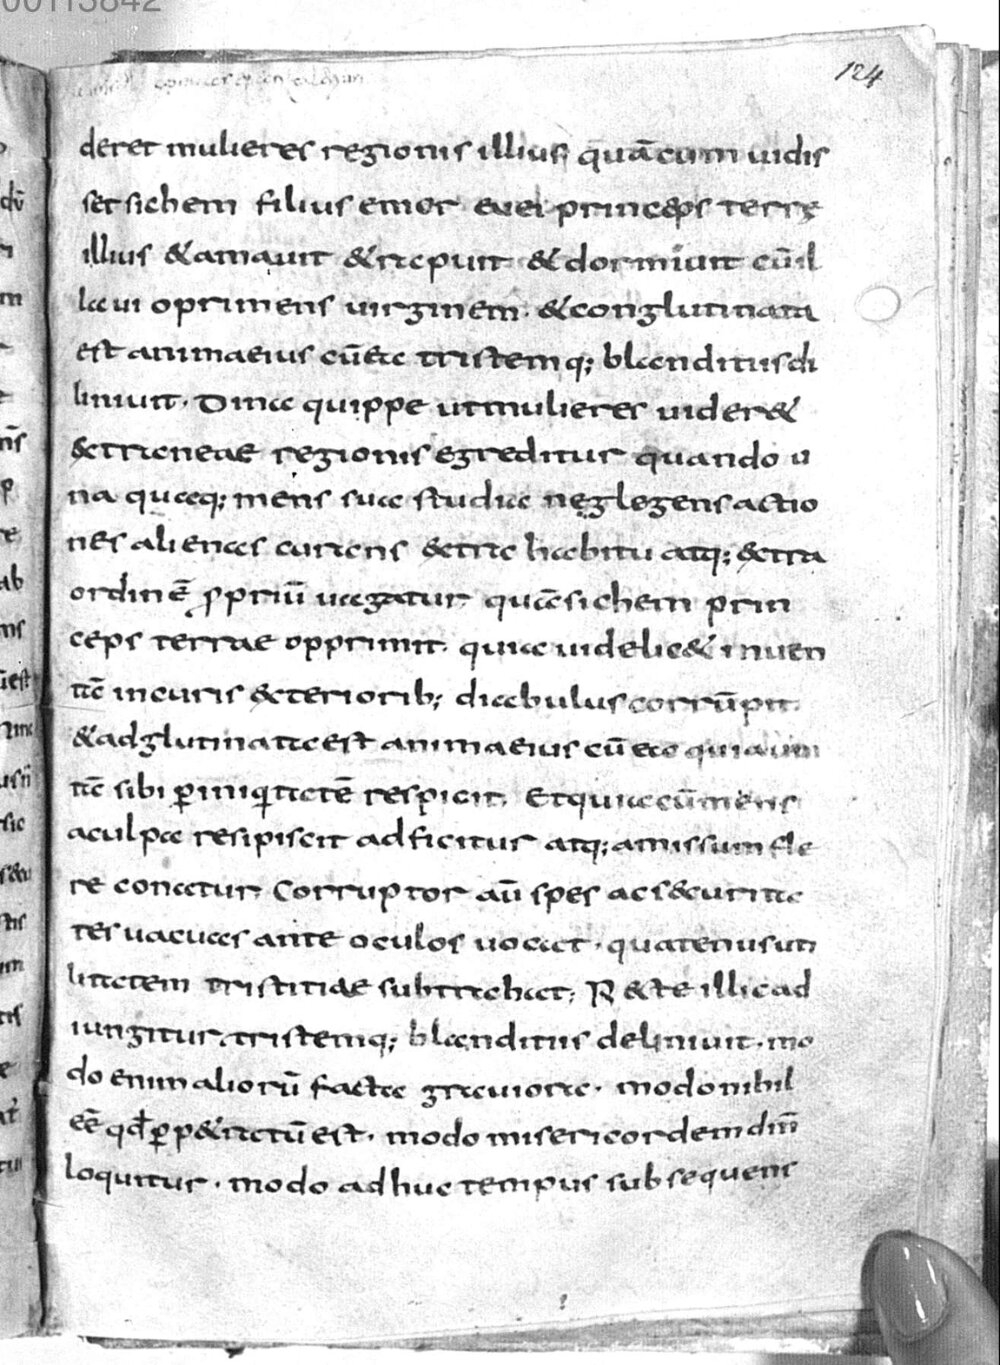 00113842
124
deret mulieres regionis illius quā cum uidis
set sichem filius emor euei princeps terrę
illius & amauit & rapuit & dormiuit cū il
la ui oprimens uirginem. & conglutinata
est anima eius cū ea tristemq; blanditiis di
liniuit. Dina quippe ut mulieres uider&
&traneae regionis egreditur quando u
na quaeq; mens sua studia neglegens actio
nes alienas curans &tra habitu atq; &tra
ordinē ꝓpriū uagatur quā sichem prin
ceps terrae opprimit. quia uidelic& inuen
tā in curis &teriorib; diabulus corrūpit.
& adglutinata est anima eius cū ea quia uni
tā sibi ꝑ iniqitatē respicit. Et quia cū mens
a culpa resipiscit adficitur atq; amissum fle
re conatur. Corruptor aū spes ac s&curita
tes uacuas ante oculos uocat. quatenus uti
litatem tristitiae subtrahat; R&te illic ad
iungitur. tristemq; blanditiis deliniuit. mo
do enim aliorū facta grauiora. modo nihil
eē qđ ꝑp&ratū est. modo misericordem dm̄
loquitur. modo adhuc tempus subsequens